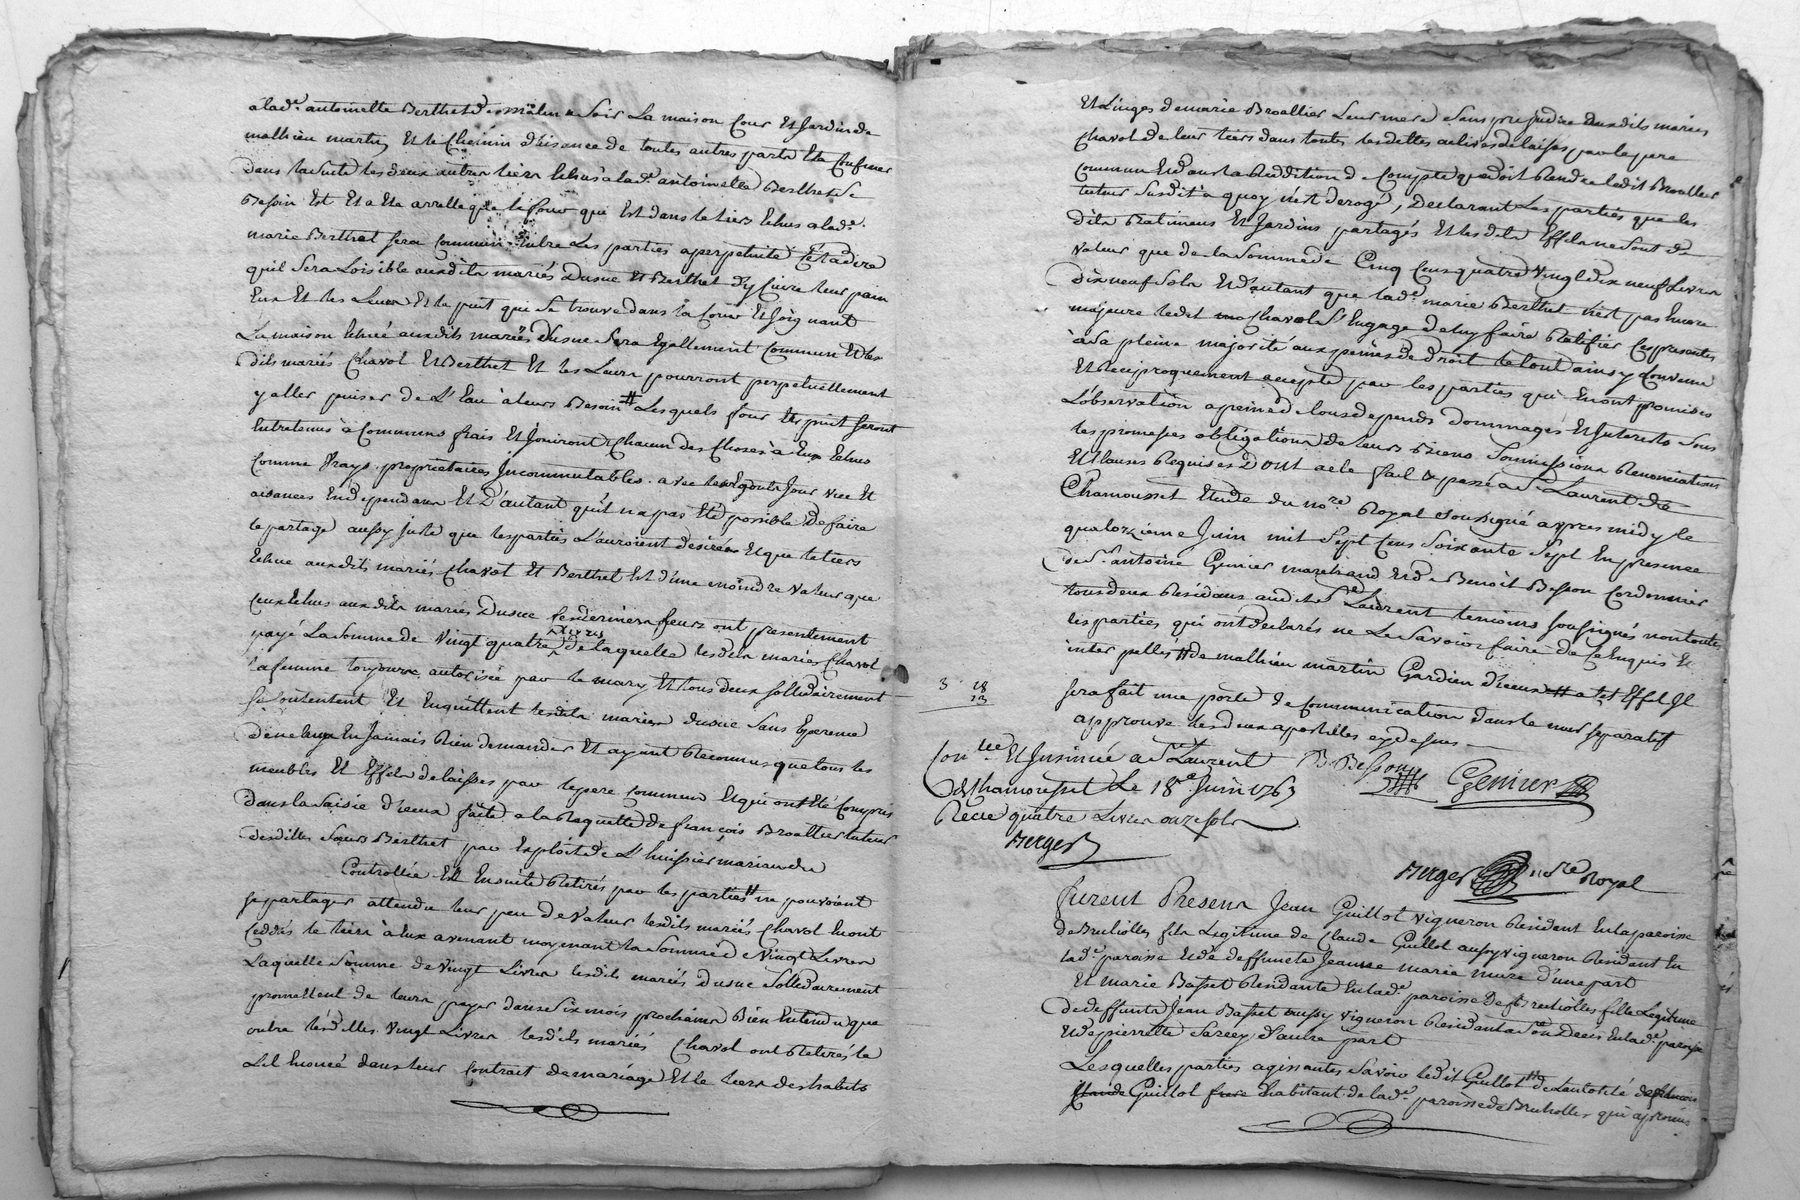 à lad.e antoinette Berthet de matin & Soir La maison Cour Et Jardin de
mathieu martin Et le Chemin d'aisance de toutes autres parts Et a Confiner
dans la suite les deux autres tiers Echus a lad.e antoinette Berthet Se
Besoin Est Et a Eté arretté que le four qui Est dans le tiers Echus a lad.e
marie Berthet sera Commun Entre Les parties a perpetuité C'est a dire
quil Sera Loisible auxdits mariés Dusuc Et Berthet d'y Cuire leur pain
Eux Et les Leurs Et le puit qui Se trouve dans la Cour Et Joignant
La maison Echue auxdits mariés Dusuc Sera Egallement Commun Et les
dits mariés Chavot Et Berthet Et les Leurs pourront perpetuellement
y aller puiser de L'Eau à leurs Besoin # Lesquels four Et puit seront
Entretenus à Communs frais Et Jouiront Chacun des Choses à Eux Echus
Comme vrays proprietaires Incommutables avec les Egouts Jour vue Et
aisances En dependans Et D'autant qu'il n'a pas Eté possible de faire
le partage aussy juste que les parties L'auroient desirées Et que le tiers
Echue auxdits mariés Chavot Et Berthet Est d'une moindre Valeur que
Ceux Echus auxdits mariés Dusuc Ces derniers leurs ont presentement
payé La Somme de Vingt quatre Livres de laquelle lesdits mariés Chavot
la femme toujours autorisée par le mary Et tous deux sollidairement
se Contentent Et Enquittent lesdits mariés Dusuc Sans Esperence
de ne leurs En Jamais Rien demander Et ayant Reconnus que tous les
meubles Et Effets delaissés par le pere Commun Et qui ont Eté Compris
dans la Saisie d'iceux faite a la Requette de françois Broallier tuteur
desdittes Sœurs Berthet par Exploit de L'huissier mariande
Controllée Et Ensuite Retirés par les parties # ne pouvoient
se partager attendu leur peu de Valeur lesdits mariés Chavot En ont
Ceddés le tiers à Eux avenant moyenant la Somme de Vingt Livres
Laquelle Somme de Vingt Livres lesdits mariés Dusuc Sollidairement
promettent de leurs payer dans Six mois prochains Bien Entendu que
outre lesdittes Vingt Livres lesdits mariés Chavot ont Retirés le
Lit Enoncé dans leur Contrait de mariage Et le tiers des habits
Et Linges de marie Broallier Leur mere Sans prejudice auxdits mariés
Chavot de leur tiers dans toutes lesdittes delaissés par le pere
Commun Et dans la Reddition de Compte que doit Rendre ledit Broallier
tuteur Susdit a quoy n'est derogé, Declarant Les parties que les
dits Batimens Et Jardins partagés Et lesdits Effets ne sont de
Valeur que de la Somme de Cinq Cens quatre Vingt dix neuf Livres
dix neuf Sols Et d'autant que lad.e marie Berthet n'est pas Encore
majeure ledit Chavot S'Engage de luy faire Ratifier Ces presentes
à Sa pleine majorité aux peines de droit le tout ainsy Convenu
Et Reciproquement accepté par les parties qui En ont promises
L'observation a peine de tous depends dommages Et Interets Sous
les promesses obligations de leurs Biens Soumissions Renonciations
Et Clauses Requises Dont acte fait & passé a S.t Laurent de
Chamousset Etude du no.re Royal Soussigné aprés midy le
quatorzieme Juin mil Sept Cens Soixante Sept En presence
de S.r antoine Genier marchand Et de Benoit Besson Cordonnier
tous deux Résidans audit S.t Laurent temoins soussignés non toutes
les parties qui ont declarés ne Le Savoir faire de Ce Enquis Et
interpellés # de mathieu martin Gardien d'iceux # a cet Effet Il
sera fait une porte de Communication dans le mur separatif
approuve les deux apostilles cy dessus
3 18
13
Con.lée Et Insinué a S.t Laurent
de Chamousset Le 18.e Juin 1767
Reçu quatre Livres onze Sols
Berger
B Besson
Genier
Berger no.re Royal
Furent Presens Jean Guillot vigneron Résident En la paroisse
de Brullioles fils Legitime de Claude Guillot aussy vigneron Résidant En
lad.e paroisse Et de deffuncte Jeanne marie mure d'une part
Et Marie Basset Residante En lad.e paroisse de Brullioles fille Legitime
de deffunts Jean Basset aussy Vigneron Résidant En lad.e paroisse
Et de pierrette Sarcey d'autre part
Lesquelles parties agissantes Savoir ledit Guillot # de l'autorité de françois
Claude Guillot frere habitant de lad.e paroisse de Brullioles qui a promis